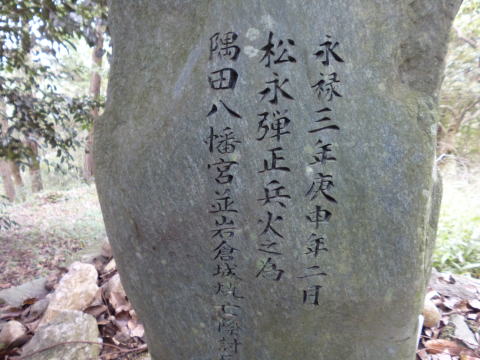 永禄三年庚申年二月
松永弾正兵火之為
隅田八幡宮並岩倉城焼亡